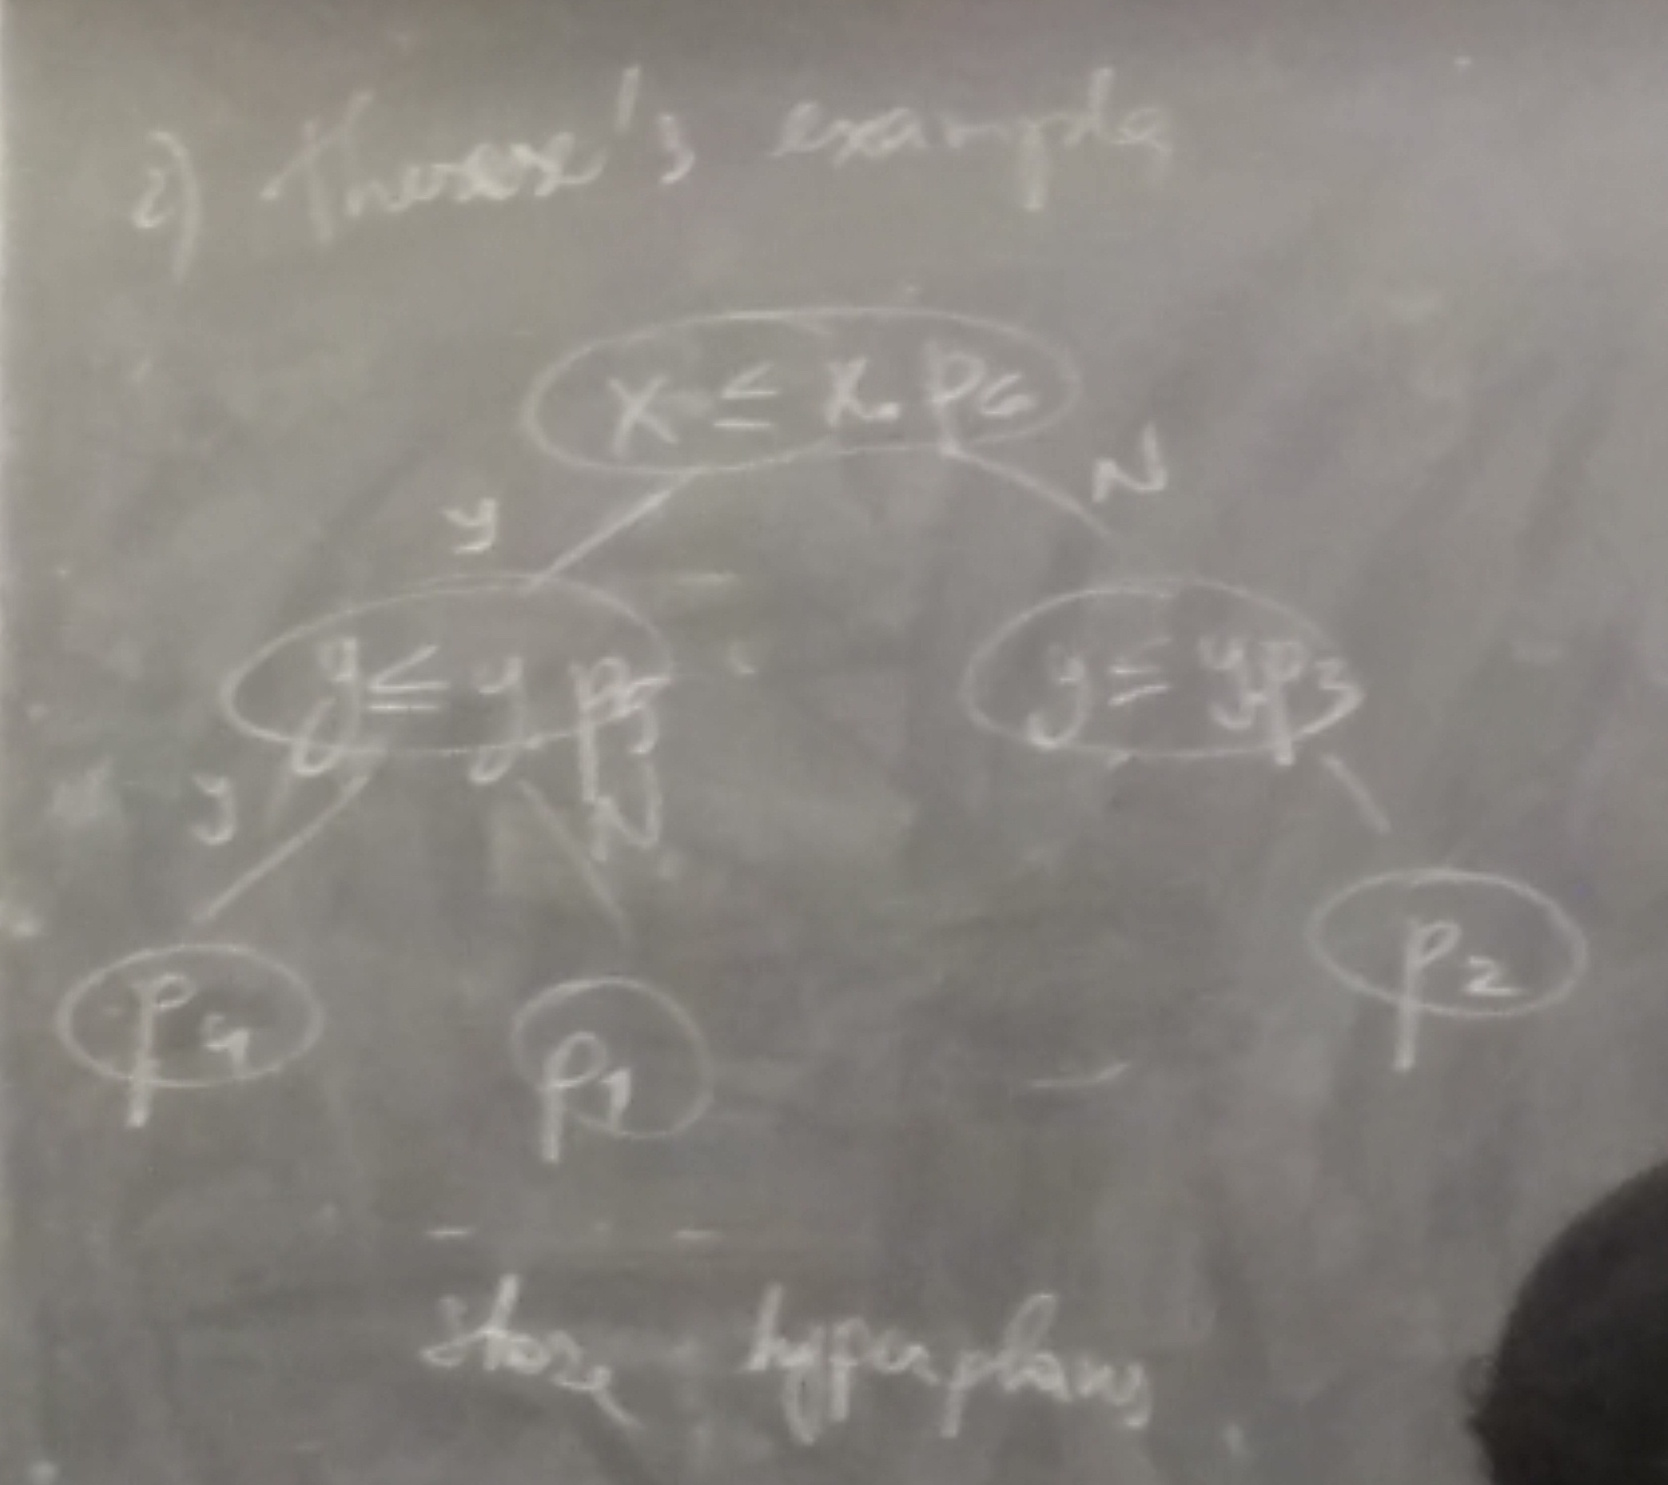 2) Therese's example
x ≤ x. p6
y N
y ≤ y p5 y ≤ yp3
y N
p2
p4 p1
store hyperplans